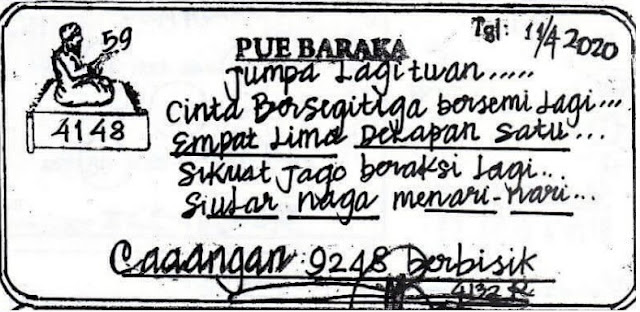 Tgl: 11/4 2020
59
4148
PUE BARAKA
Jumpa Lagi tuan.....
Cinta Bersegitiga bersemi Lagi...
Empat Lima Delapan Satu...
Sikuat Jago beraksi Lagi...
Siular naga menari-nari...
Cadangan 9248 berbisik
4132 R